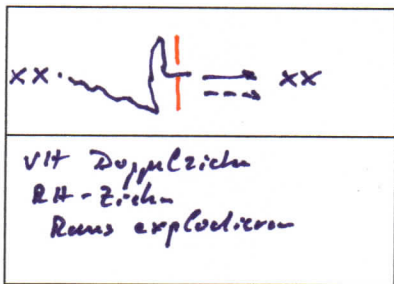 xx xx
VH Doppelziehn
RH-Ziehn
Raus explodieren